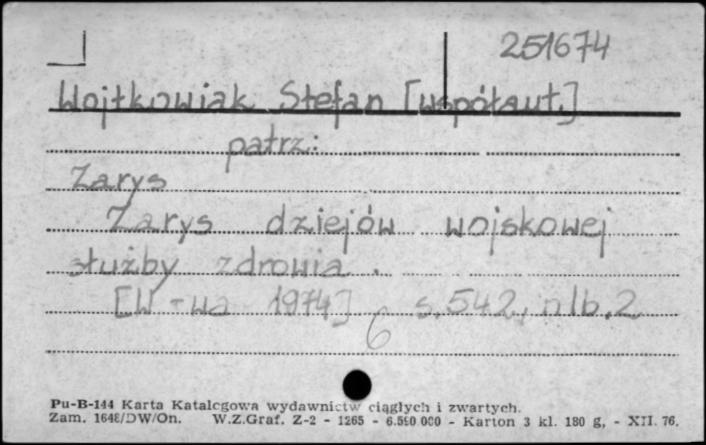 251674
Wojtkowiak Stefan [współaut.]
patrz:
Zarys
Zarys dziejów wojskowej
służby zdrowia.
[W-wa 1974] s. 542, nlb. 2
6
Pu-B-144 Karta Katalogowa wydawnictw ciągłych i zwartych.
Zam. 1648/DW/On. W.Z.Graf. Z-2 - 1265 - 6.590 000 - Karton 3 kl. 180 g, - XII. 76.